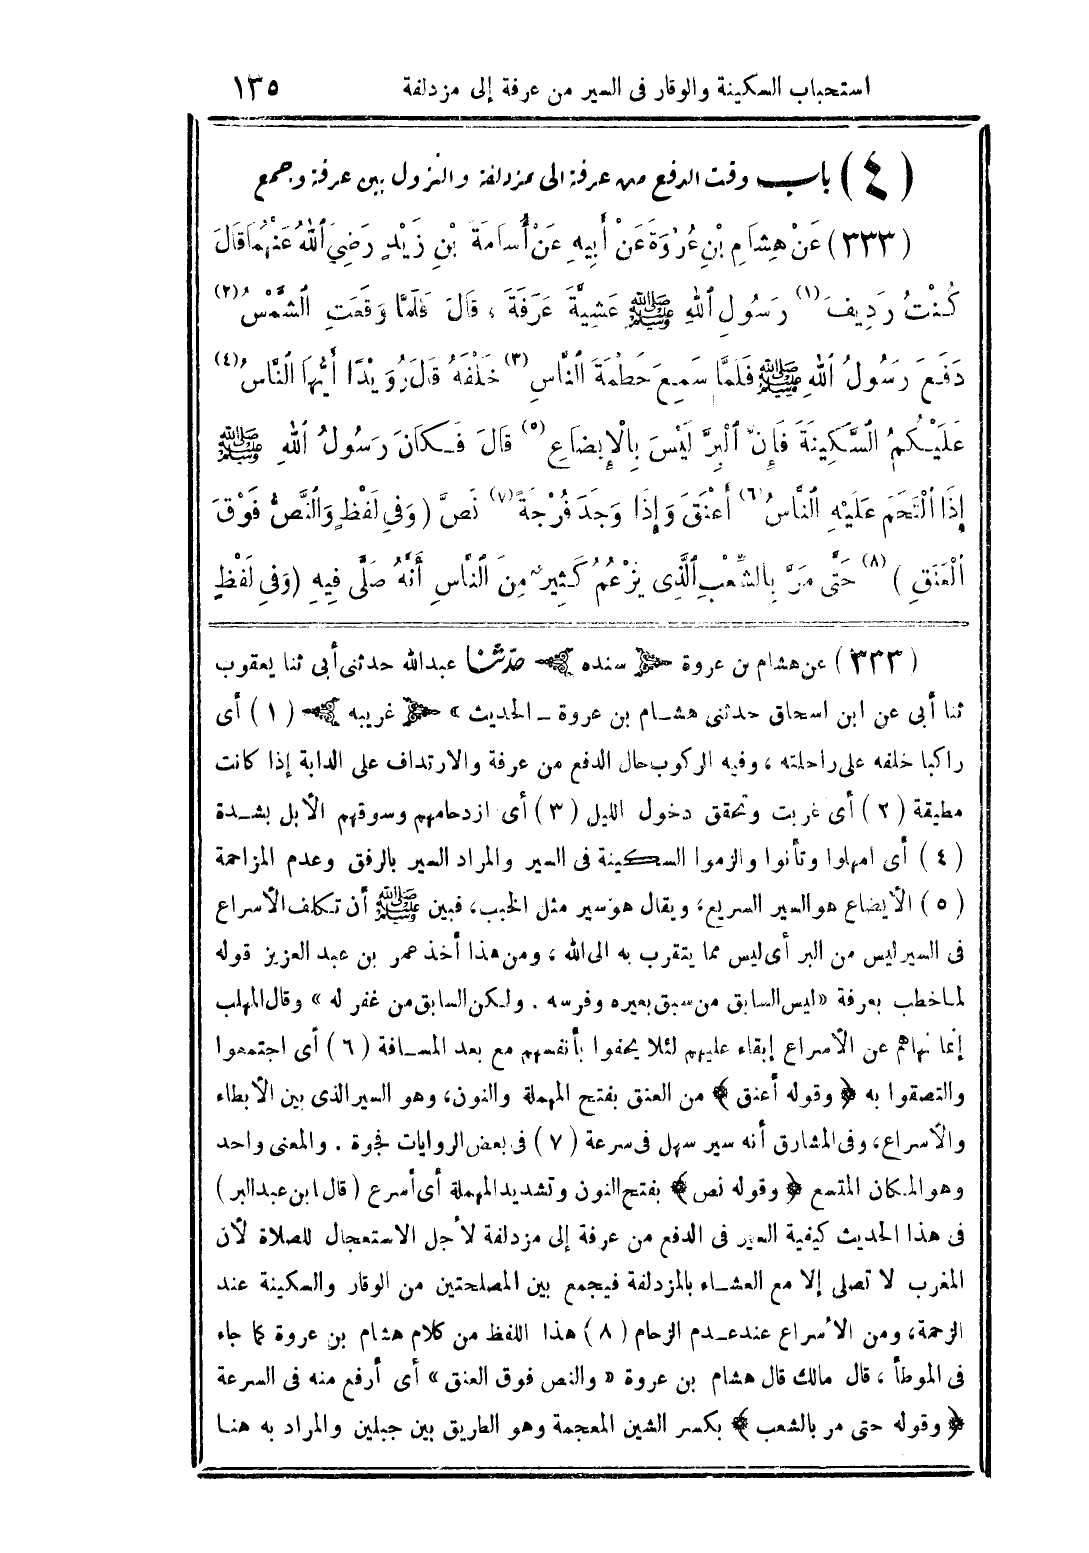 استحباب السكينة والوقار فى السير من عرفة إلى مزدلفة ١٣٥
(٤) باب وقت الدفع من عرفة الى مزدلفة والنزول بين عرفة وجمع
(٣٣٣) عَنْ هِشَامِ بْنِ عُرْوَةَ عَنْ أَبِيهِ عَنْ أُسَامَةَ بْنِ زَيْدٍ رَضِيَ اللهُ عَنْهُمَا قَالَ
كُنْتُ رَدِيفَ (١) رَسُولِ اللهِ ﷺ عَشِيَّةَ عَرَفَةَ ، قَالَ فَلَمَّا وَقَعَتِ الشَّمْسُ (٢)
دَفَعَ رَسُولُ اللهِ ﷺ فَلَمَّا سَمِعَ حَطْمَةَ النَّاسِ (٣) خَلْفَهُ قَالَ رُوَيْدًا أَيُّهَا النَّاسُ (٤)
عَلَيْكُمُ السَّكِينَةَ فَإِنَّ الْبِرَّ لَيْسَ بِالْإِيضَاعِ (٥) قَالَ فَكَانَ رَسُولُ اللهِ ﷺ
إِذَا الْتَحَمَ عَلَيْهِ النَّاسُ (٦) أَعْنَقَ وَإِذَا وَجَدَ فُرْجَةً (٧) نَصَّ (وَفِي لَفْظٍ وَالنَّصُّ فَوْقَ
الْعَنَقِ) (٨) حَتَّى مَرَّ بِالشِّعْبِ الَّذِى يَزْعُمُ كَثِيرٌ مِنَ النَّاسِ أَنَّهُ صَلَّى فِيهِ (وَفِي لَفْظٍ
(٣٣٣) عن هشام بن عروة ﴿ سنده ﴾ حدّثنا عبدالله حدثنى أبى ثنا يعقوب
ثنا أبى عن ابن اسحاق حدثنى هشام بن عروة ـ الحديث » ﴿ غريبه ﴾ (١) أى
راكبا خلفه على راحلته ، وفيه الركوب حال الدفع من عرفة والارتداف على الدابة إذا كانت
مطيقة (٢) أى غربت وتحقق دخول الليل (٣) أى ازدحامهم وسوقهم الأبل بشدة
(٤) أى امهلوا وتأنوا والزموا السكينة فى السير والمراد السير بالرفق وعدم المزاحمة
(٥) الأيضاع هو السير السريع، ويقال هو سير مثل الخبب، فبين ﷺ أن تكلف الأسراع
فى السير ليس من البر أى ليس مما يتقرب به الى الله ، ومن هذا أخذ عمر بن عبد العزيز قوله
لما خطب بعرفة «ليس السابق من سبق بعيره وفرسه . ولكن السابق من غفر له» وقال المهلب
إنما نهاهم عن الأسراع إبقاء عليهم لئلا يجحفوا بأنفسهم مع بعد المسافة (٦) أى اجتمعوا
والتصقوا به ﴿ وقوله أعنق ﴾ من العنق بفتح المهملة والنون، وهو السير الذى بين الأبطاء
والأسراع، وفى المشارق أنه سير سهل فى سرعة (٧) فى بعض الروايات فجوة . والمعنى واحد
وهو المكان المتسع ﴿ وقوله نص ﴾ بفتح النون وتشديد المهملة أى أسرع (قال ابن عبد البر)
فى هذا الحديث كيفية السير فى الدفع من عرفة إلى مزدلفة لأجل الاستعجال للصلاة لأن
المغرب لا تصلى إلا مع العشاء بالمزدلفة فيجمع بين المصلحتين من الوقار والسكينة عند
الزحمة، ومن الأسراع عند عدم الزحام (٨) هذا اللفظ من كلام هشام بن عروة كما جاء
فى الموطأ ، قال مالك قال هشام بن عروة « والنص فوق العنق » أى أرفع منه فى السرعة
﴿ وقوله حتى مر بالشعب ﴾ بكسر الشين المعجمة وهو الطريق بين جبلين والمراد به هنا